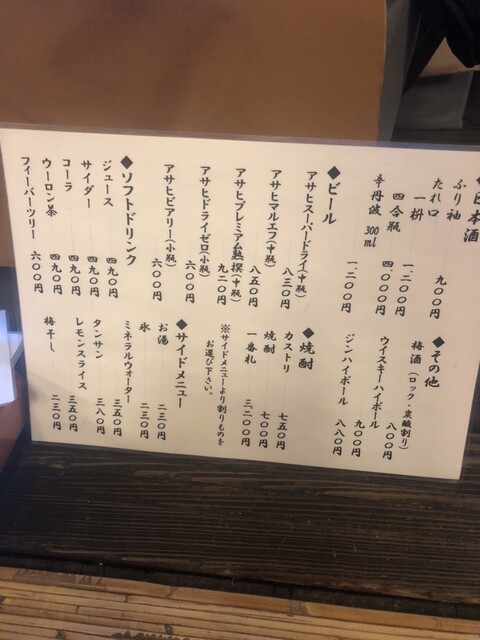 ◆日本酒
ふり袖 九〇〇円
たれ口
一枡 一、二〇〇円
四合瓶 四、〇〇〇円
辛丹波 300ml 一、二〇〇円
◆ビール
アサヒスーパードライ(中瓶) 八三〇円
アサヒマルエフ(中瓶) 八五〇円
アサヒプレミアム熟撰(中瓶) 九二〇円
アサヒドライゼロ(小瓶) 六〇〇円
アサヒビアリー(小瓶) 六〇〇円
◆ソフトドリンク
ジュース 四九〇円
サイダー 四九〇円
コーラ 四九〇円
ウーロン茶 四九〇円
フィーバーツリー 六〇〇円
◆その他
梅酒(ロック・炭酸割り) 八〇〇円
ウイスキーハイボール 九〇〇円
ジンハイボール 八八〇円
◆焼酎
カストリ 七五〇円
焼酎 七〇〇円
一番札 三、二〇〇円
※サイドメニューより割りものを
お選び下さい。
◆サイドメニュー
お湯 二三〇円
氷 二三〇円
ミネラルウォーター 三五〇円
タンサン 三八〇円
レモンスライス 三五〇円
梅干し 二三〇円